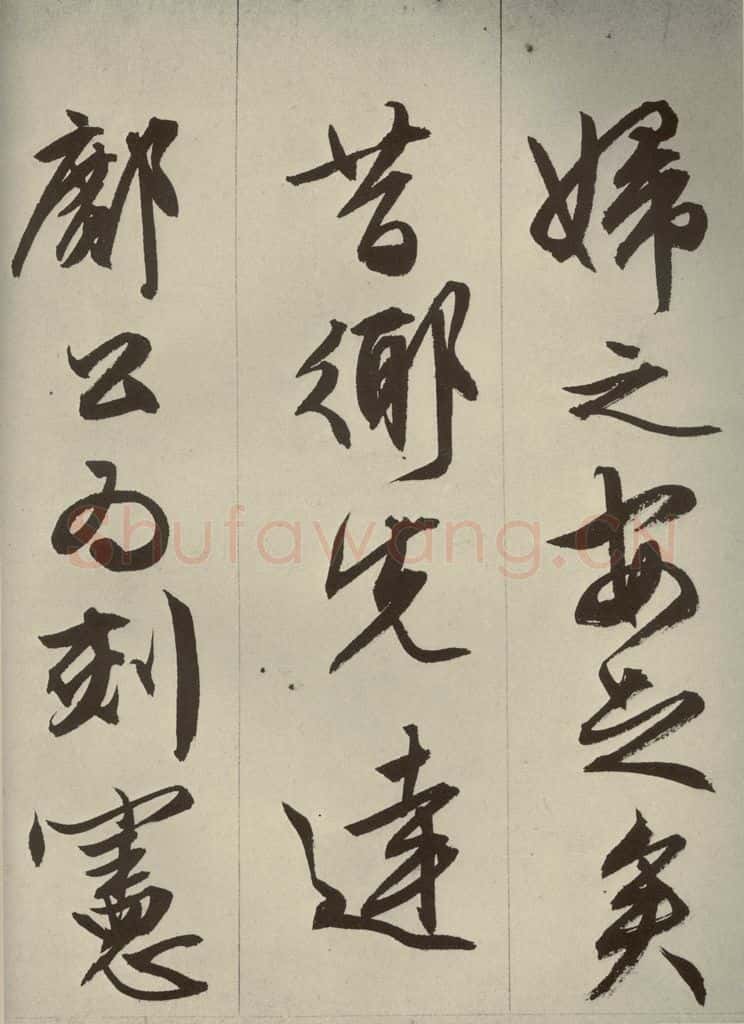 婦之安之矣
昔鄉先達
公為刻憲
Shufawang.CN